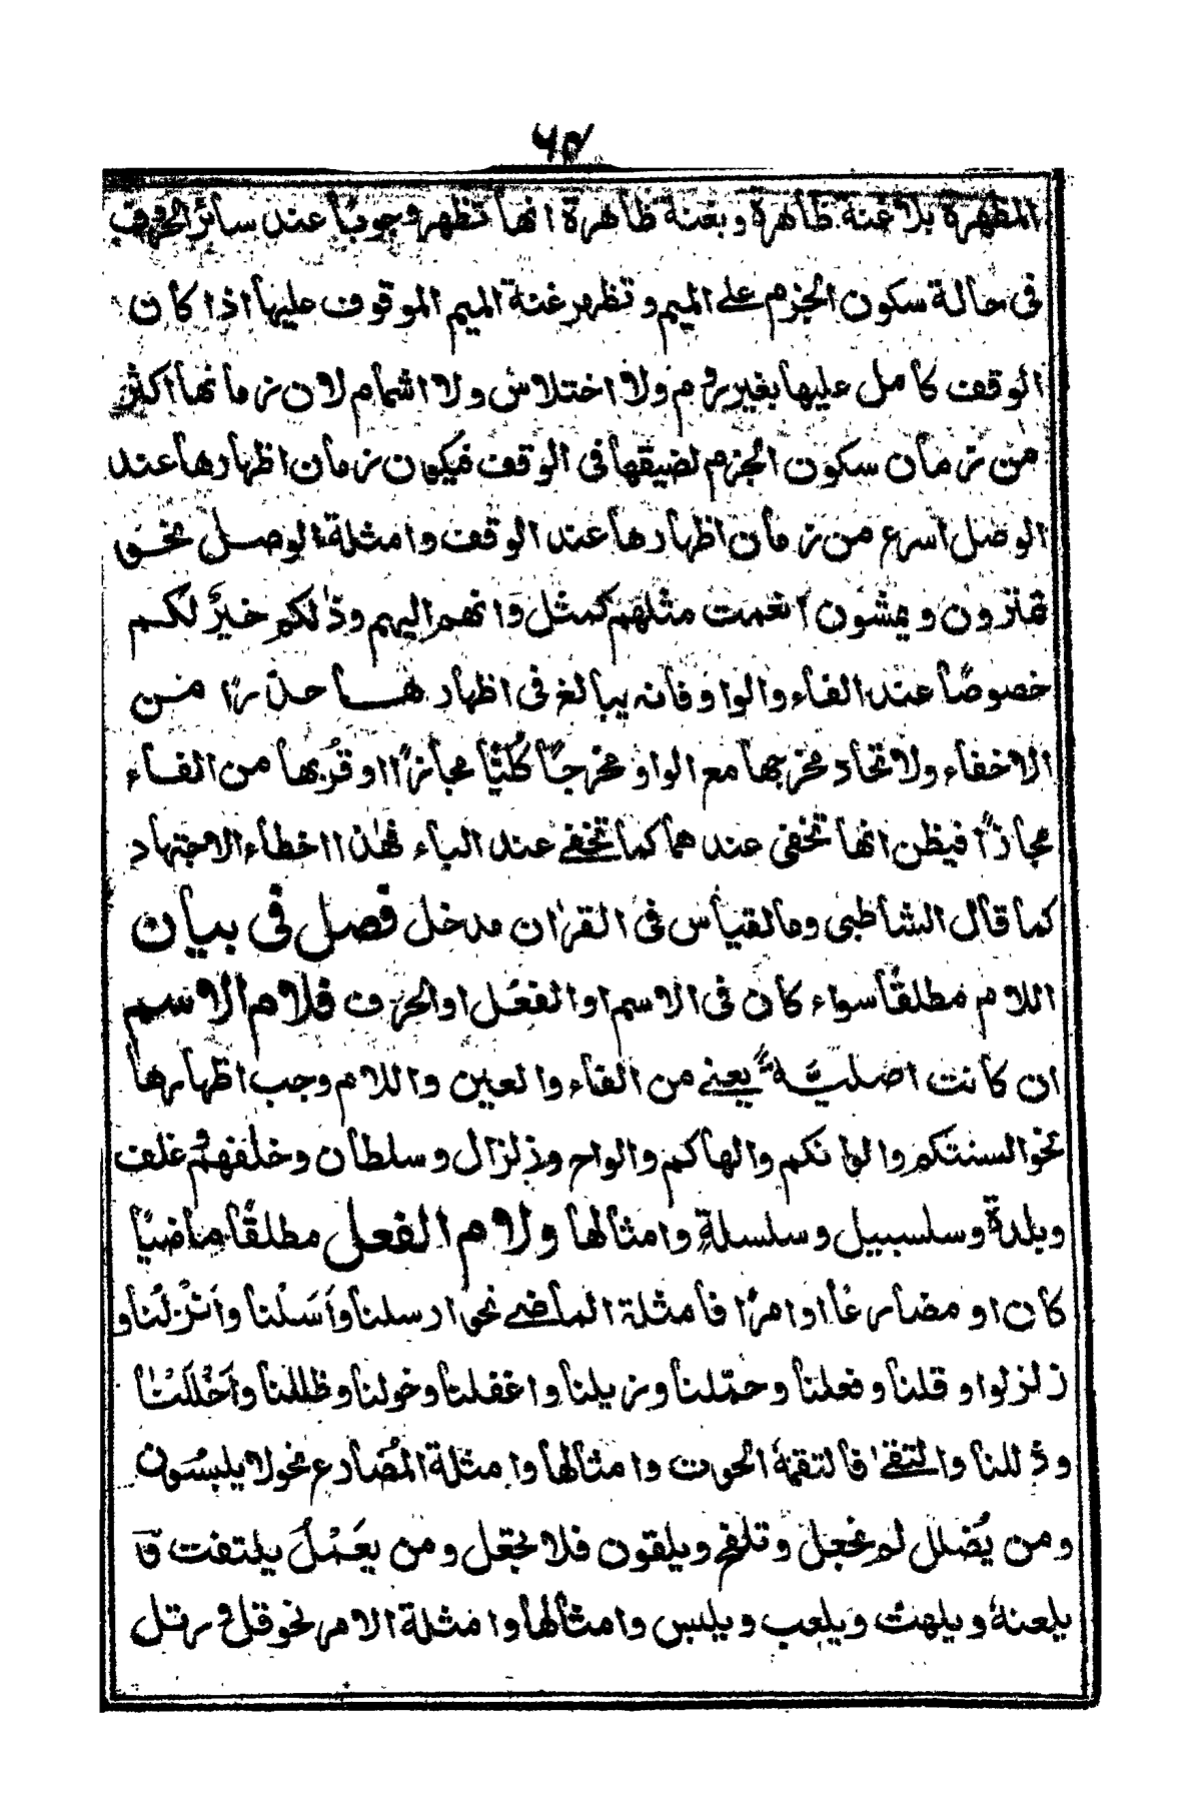 ٦٥
المظهرة بلا غنة ظاهرة وبغنة ظاهرة انها تظهر وجوبًا عند سائر الحروف
فى حالة سكون الجزم على الميم وتظهر غنة الميم الموقوف عليها اذا كان
الوقف كامل عليها بغير روم ولا اختلاس ولا اشمام لان زمانها اكثر
من زمان سكون الجزم لضيقها فى الوقف فيكون زمان اظهارها عند
الوصل اسرع من زمان اظهارها عند الوقف وامثلة الوصل نحو
تمترون ويمشون انعمت مثلهم كمثل وانهم اليهم وذٰلكم خيرٌ لكم
خصوصًا عند الفاء والواو فانه يبالغ فى اظهارها حذرًا من
الاخفاء ولاتحاد مخرجها مع الواو مخرجًا كليًّا مجازًا او قُربها من الفاء
مجازًا فيظن انها تخفى عند هما كما تخفے عند الباء فهٰذا اخطاء الاجتهاد
كما قال الشاطبى وما لقياس فى القرٰان مدخل فصل فى بيان
اللام مطلقًا سواء كان فى الاسم او الفعل او الحرف فلام الاسم
ان كانت اصليّة يعنے من الفاء والعين واللام وجب اظهارها
نحو السنتكم والوانكم والهاكم والواح وزلزال وسلطان وخلفهم وغلف
وبلدة وسلسبيل وسلسلةٍ وامثالها ولام الفعل مطلقًا ماضيًا
كان او مضارعًا او امرًا فامثلة الماضے نحو ارسلنا وَاَسَلْنا وَاَنْزَلْنا و
زلزلوا و قلنا وفعلنا وحمّلنا وزيلنا واغفلنا وخولنا وظللنا وَاَحْلَلْنا
وذللنا والتقےٰ فالتقمهٗ الحوت وامثالها وامثلة المُضارع نحو لا يلبسون
ومن يُضلل لم نجعل وتلفح ويلقون فلا نجعل ومن يَعْمَلْ يلتفت و
يلعنهٗ ويلهث ويلعب ويلبس وامثالها وامثلة الامر نحو قل ورتل